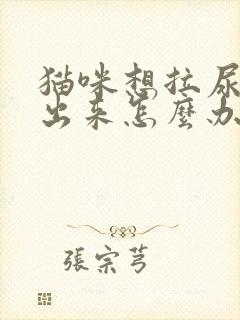 猫咪想拉尿
出来怎麼办
張宗芎